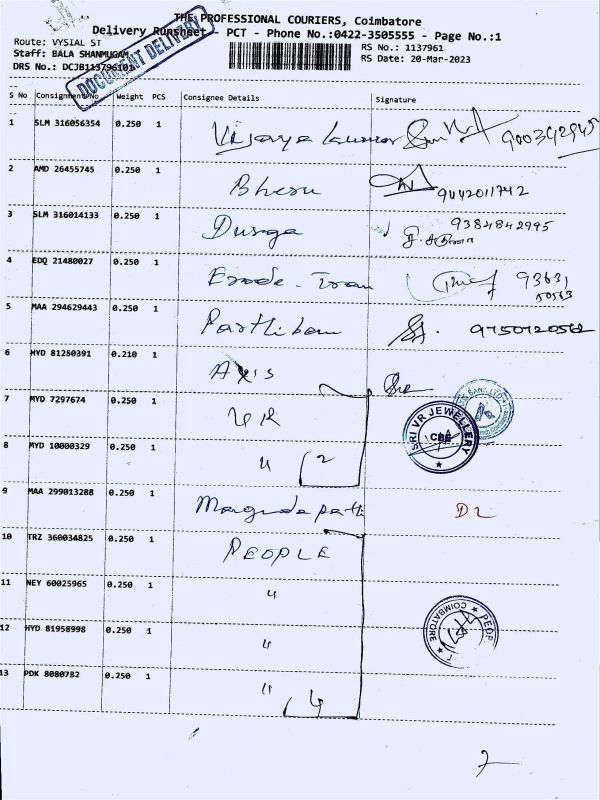 THE PROFESSIONAL COURIERS, Coimbatore
Delivery Runsheet - PCT - Phone No.:0422-3505555 - Page No.:1
Route: VYSIAL ST
RS No.: 1137961
Staff: BALA SHANMUGAM
RS Date: 20-Mar-2023
DRS No.: DCJB113796101
DOCUMENT DELIVERY
S No Consignment No Weight PCS Consignee Details Signature
1 SLM 316056354 0.250 1 Vijaya kumar 900342945
2 AMD 26455745 0.250 1 9442011742
3 SLM 316014133 0.250 1 Durga 9384842995
4 EDQ 21480027 0.250 1 Erode. 93631
50563
5 MAA 294629443 0.250 1 Parthiban 9750720562
6 HYD 81250391 0.210 1 Axis
7 MYD 7297674 0.250 1 VR
SRI VR JEWELLERY CBE
8 MYD 10000329 0.250 1 " 2
9 MAA 299013288 0.250 1 D2
10 TRZ 360034825 0.250 1 PEOPLE
11 NEY 60025965 0.250 1 "
12 HYD 81958998 0.250 1 "
COIMBATORE PEOP
13 PDK 8080782 0.250 1 " 4